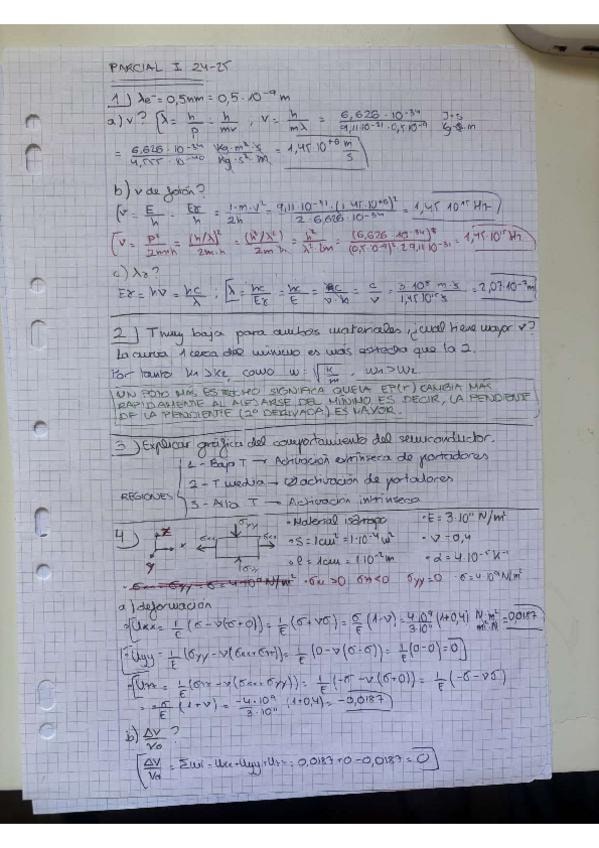 PARCIAL I 24-25
1) λe⁻ = 0,5nm = 0,5·10⁻⁹ m
a) v? [λ = h/p = h/mv, v = h/mλ = 6,626·10⁻³⁴ / 9,11·10⁻³¹·0,5·10⁻⁹ J·s / kg·m
= 6,626·10⁻³⁴ / 4,555·10⁻⁴⁰ kg·m²·s / kg·s²·m = 1,45·10⁺⁶ m/s
b) ν de fotón?
[ν = E/h = Eγ/h = 1·m·v²/2h = 9,11·10⁻³¹·(1,45·10⁺⁶)² / 2·6,626·10⁻³⁴ = 1,45 10¹⁵ Hz
[ν = p²/2m·h = (h/λ)²/2m·h = (h²/λ²)/2m·h = h/λ²·2m = (6,626 10⁻³⁴) / (0,5·10⁻⁹)²·2·9,11·10⁻³¹ = 1,45·10¹⁵ Hz
c) λγ?
Eγ = hν = h c/λ; [λ = hc/Eγ = hc/E = hc/ν·h = c/ν = 3·10⁸ m·s / 1,45·10¹⁵ s = 2,07·10⁻⁷ m
2) T muy baja para ambos materiales, ¿cual tiene mayor ν?
La curva 1 cerca del mínimo es más estrecha que la 2.
Por tanto K₁ > K₂, como ω = √K/m, ω₁ > ω₂
UN POZO MÁS ESTRECHO SIGNIFICA QUE LA EP(r) CAMBIA MÁS
RAPIDAMENTE AL ALEJARSE DEL MÍNIMO ES DECIR, LA PENDIENTE
DE LA PENDIENTE (2º DERIVADA) ES MAYOR.
3) Explicar gráfica del comportamiento del semiconductor.
REGIONES
1 - Baja T → Activación extrínseca de portadores
2 - T media → activación de portadores
3 - Alta T → Activación intrínseca
4) z x y σxx σyy σxx σyy
· Material isótropo · E = 3·10¹¹ N/m²
· S = 1cm² = 1·10⁻⁴ m² · ν = 0,4
· l = 1cm = 1·10⁻² m · α = 4·10⁻⁵ K⁻¹
· σxx>0 σzz<0 σyy=0 · σ = 4·10⁹ N/m²
a) deformación
· [Uxx = 1/E (σ - ν(σ+0)) = 1/E (σ + νσ) = σ/E (1-ν) = 4·10⁹/3·10¹¹ (1+0,4) N·m²/m²·N = 0,0187
[Uyy = 1/E (σyy - ν(σxx+σzz)) = 1/E (0 - ν(σ-σ)) = 1/E (0-0) = 0
· [Uzz = 1/E (σzz - ν(σxx+σyy)) = 1/E (-σ - ν(σ+0)) = 1/E (-σ - νσ)
= -σ/E (1+ν) = -4·10⁹/3·10¹¹ (1+0,4) = -0,0187
b) ΔV/V₀ ?
[ΔV/V₀ = ΣUii = Uxx+Uyy+Uzz = 0,0187 + 0 - 0,0187 = 0